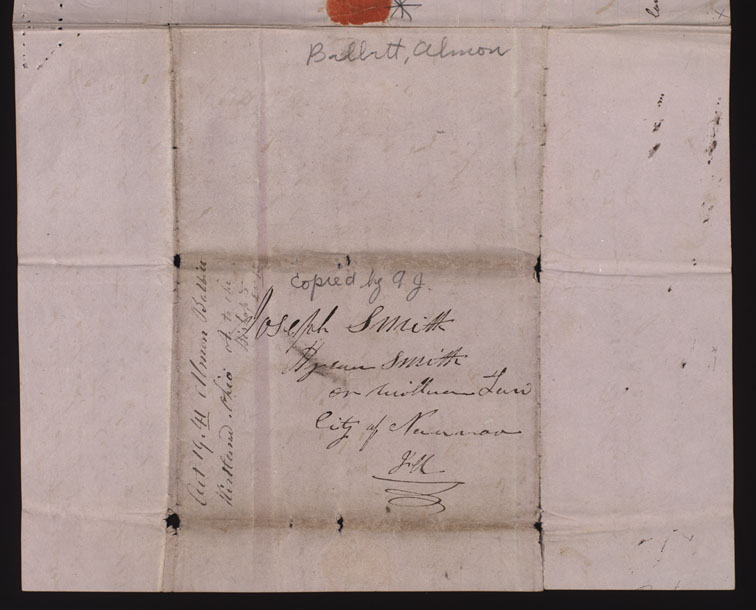 Babbitt, Almon
copied by A J.
Joseph Smith
Hyrum Smith
or William Law
City of Nauvoo
Ill
Oct 19. 41 Almon Babbitt
Kirtland Ohio